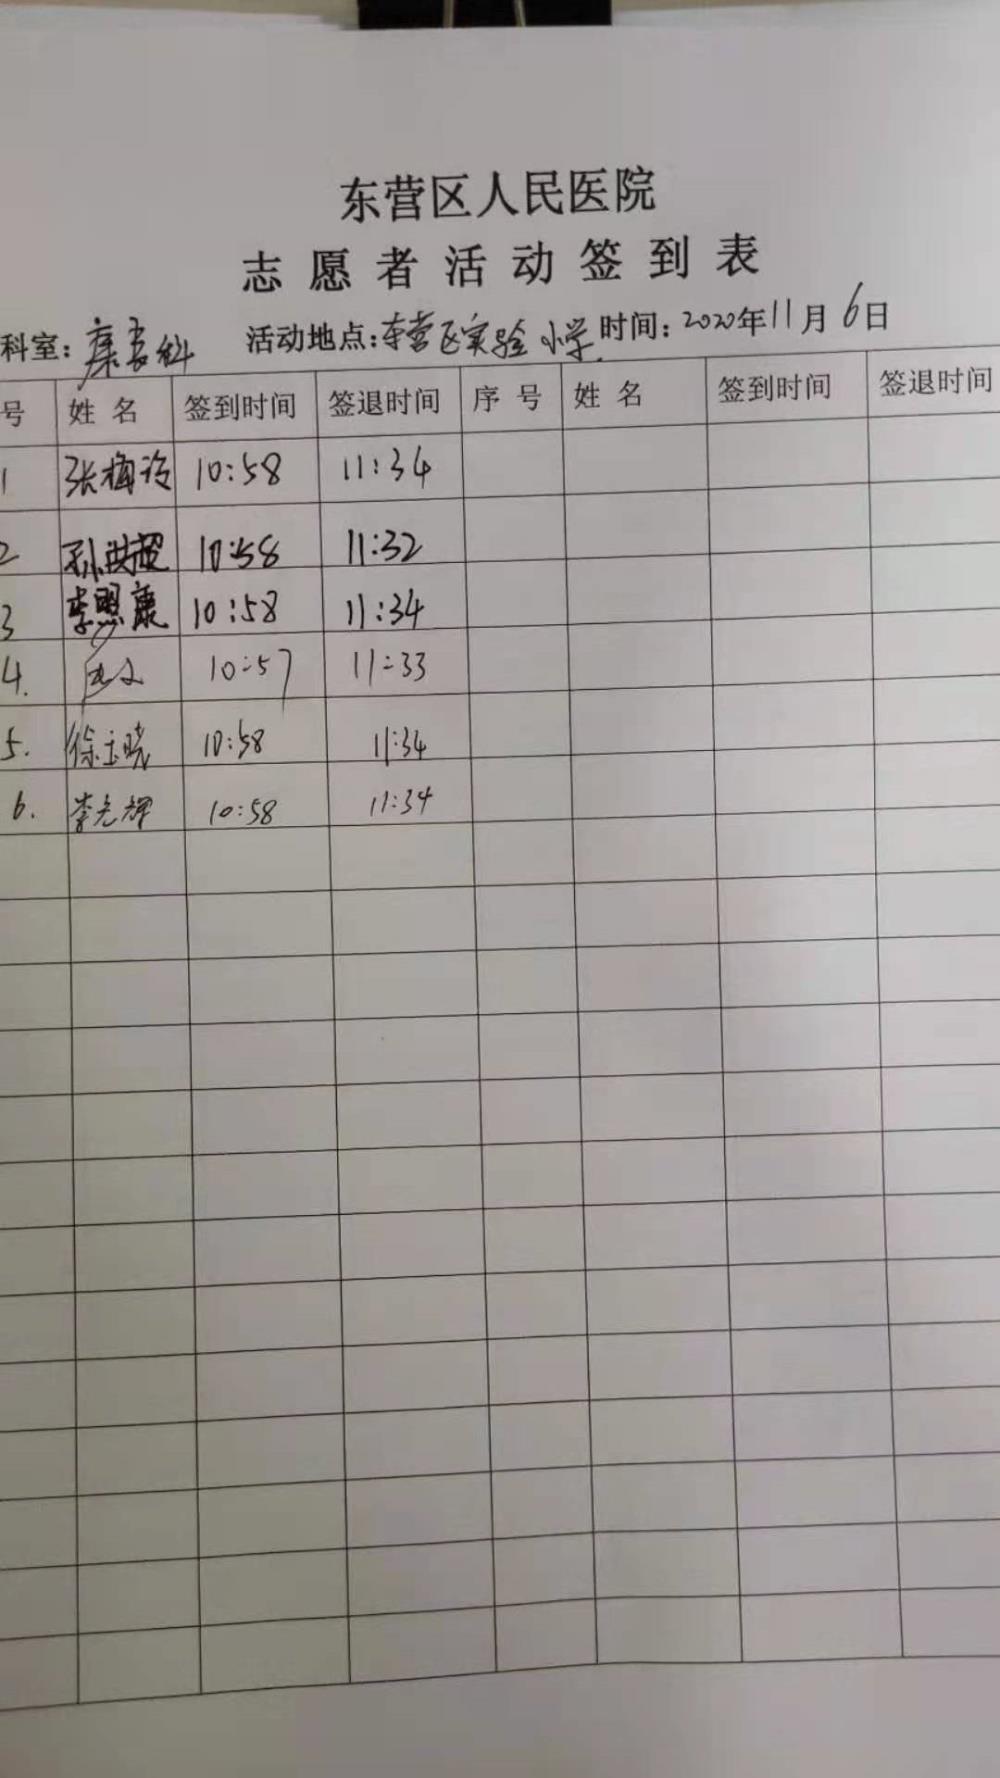 东营区人民医院
志愿者活动签到表
科室：康复科 活动地点：东营区实验小学 时间：2020年11月6日
号 姓名 签到时间 签退时间 序号 姓名 签到时间 签退时间
1 张梅玲 10:58 11:34
2 孙洪超 10:58 11:32
3 李照康 10:58 11:34
4. 10:57 11:33
5. 徐玉晓 10:58 11:34
6. 李光辉 10:58 11:34